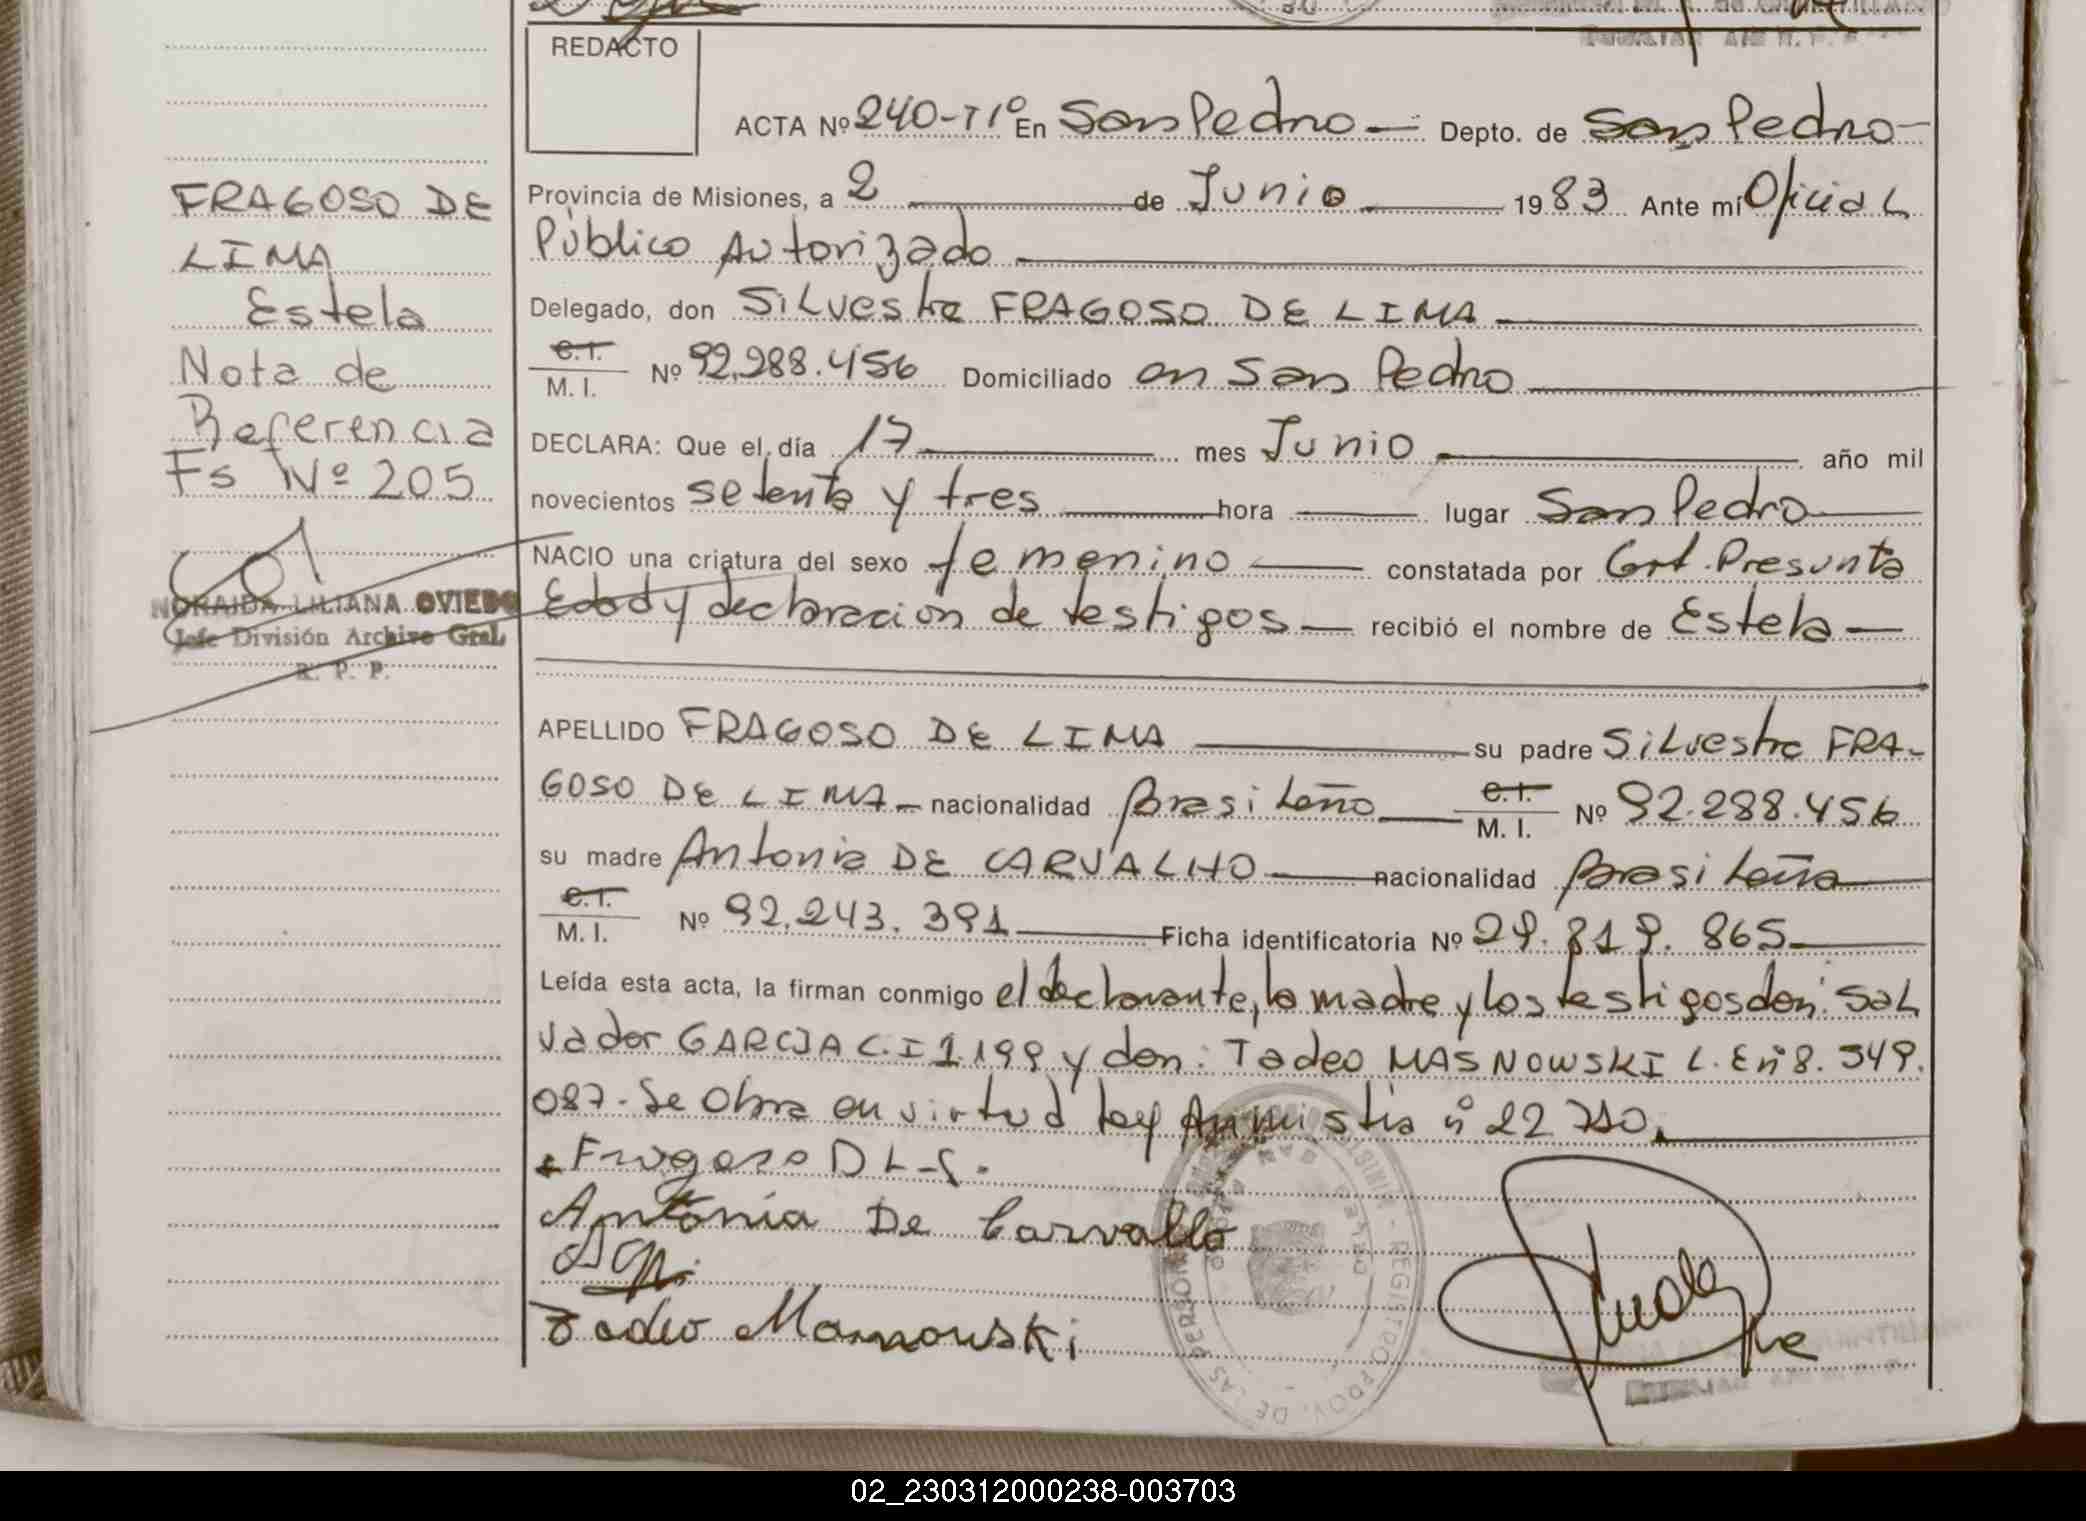 REDACTO
ACTA Nº 240-Tº1º En San Pedro Depto. de San Pedro
Provincia de Misiones, a 2 de Junio 1983 Ante mí Oficial
Público Autorizado
Delegado, don Silvestre FRAGOSO DE LIMA
C.I.
M. I. Nº 92.288.456 Domiciliado en San Pedro
DECLARA: Que el día 17 mes Junio año mil
novecientos setenta y tres hora lugar San Pedro
NACIO una criatura del sexo femenino constatada por Cert. Presunta
Edad y declaracion de testigos recibió el nombre de Estela
APELLIDO FRAGOSO DE LIMA su padre Silvestre FRA-
GOSO DE LIMA nacionalidad Brasileño C.I.
M. I. Nº 92.288.456
su madre Antonia DE CARVALHO nacionalidad Brasileña
C.I.
M. I. Nº 92.243.391 Ficha identificatoria Nº 29.819.865
Leída esta acta, la firman conmigo el declarante, la madre y los testigos don: Sal
vador GARCIA C.I 1.199 y don: Tadeo MASNOWSKI L.E nº 8.349.
087. Se Obra en virtud ley Amnistia nº 22710.
Fragoso D L S.
Antonia De Carvallo
Tadeo Masnowski
FRAGOSO DE
LIMA
Estela
Nota de
Referencia
Fs Nº 205
NORAIDA LILIANA OVIEDO
Jefe División Archivo Gral.
R. P. P.
02_230312000238-003703